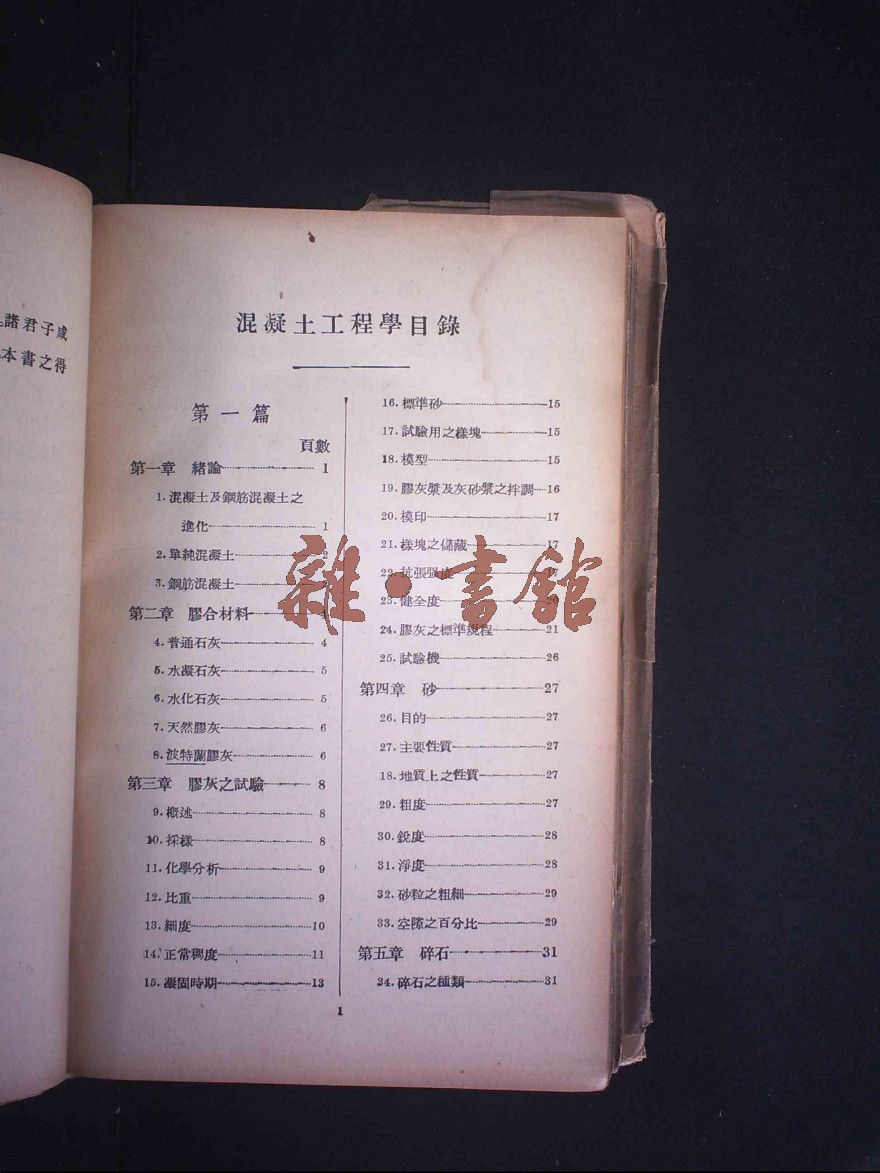 諸君子咸
本書之得
混凝土工程學目錄
第一篇
頁數
第一章 緒論 1
1. 混凝土及鋼筋混凝土之
進化 1
2. 單純混凝土 2
3. 鋼筋混凝土
第二章 膠合材料
4. 普通石灰 4
5. 水凝石灰 5
6. 水化石灰 5
7. 天然膠灰 6
8. 波特蘭膠灰 6
第三章 膠灰之試驗 8
9. 槪述 8
10. 採樣 8
11. 化學分析 9
12. 比重 9
13. 細度 10
14. 正常稠度 11
15. 凝固時期 13
16. 標準砂 15
17. 試驗用之樣塊 15
18. 模型 15
19. 膠灰漿及灰砂漿之拌調 16
20. 模印 17
21. 樣塊之儲藏 17
22. 抗張强度 17
23. 健全度 20
24. 膠灰之標準規程 21
25. 試驗機 26
第四章 砂 27
26. 目的 27
27. 主要性質 27
18. 地質上之性質 27
29. 粗度 27
30. 銳度 28
31. 淨度 28
32. 砂粒之粗細 29
33. 空隙之百分比 29
第五章 碎石 31
34. 碎石之種類 31
1
雜·書館